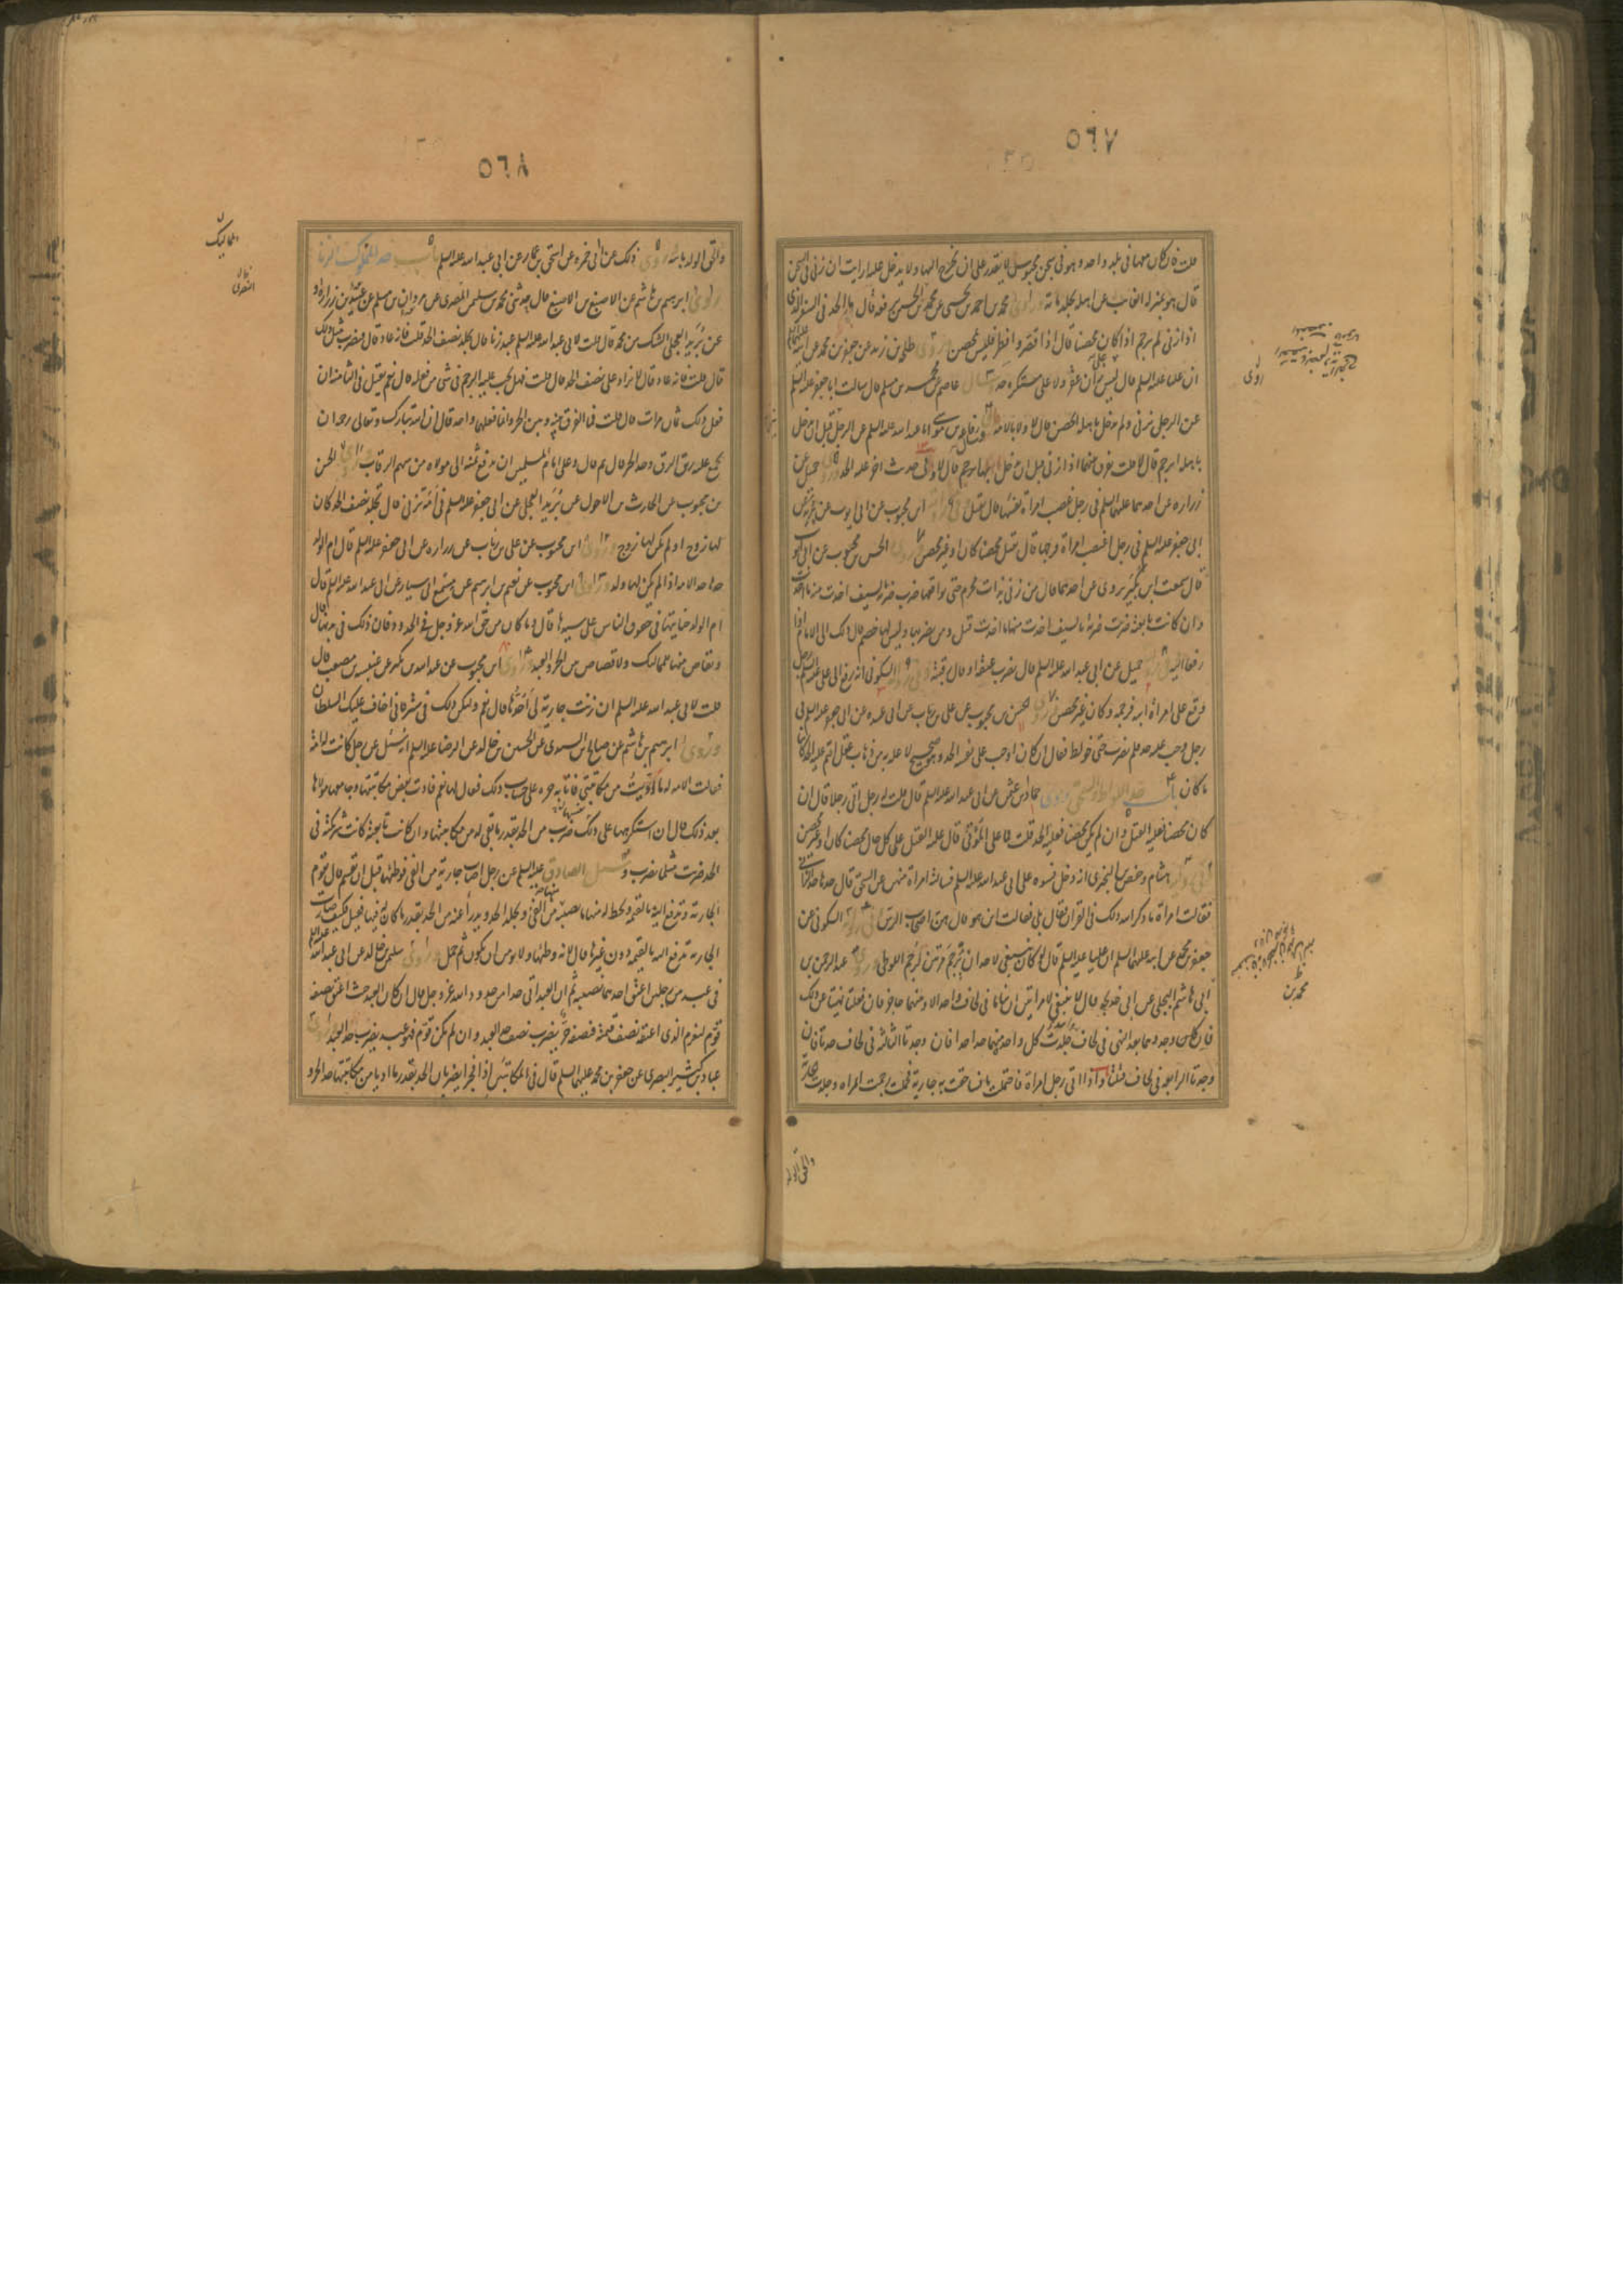 ٥٦٧
قلت فان كان معها في بلد واحد وهو في سجن محبوس لا يقدر على ان يخرج اليها ولا تدخل عليه ارايت ان زنى في السجن
قال هو بمنزلة الغائب عن اهله يجلد مائة وروى محمد بن احمد بن يحيى عن محمد بن الحسين رفعه قال الحد في السفر الذي
اذا زنى لم يرجم اذا كان محصنا قال اذا قصر وافطر فليس بمحصن وروى طلحة بن زيد عن جعفر بن محمد عن ابيه
ان عليا عليه السلم قال ليس على زان عقر ولا على مستكرهة حد عاصم عن محمد بن مسلم قال سالت ابا جعفر عليه السلم
عن الرجل يزني ولم يدخل باهله ايحصن قال لا ولا بالامة رفاعة بن موسى ابا عبد الله عليه السلم عن الرجل قبل ان يدخل
باهله ايرجم قال لا قلت يفرق بينهما اذا زنى قبل ان يدخل بها قال لا وفي حديث اخر عليه الحد جميل عن
زرارة عن احدهما عليهما السلم في رجل غصب امراة نفسها قال يقتل وفي رواية ابن محبوب عن ابي ايوب عن
ابي جعفر عليه السلم في رجل اغتصب امراة فرجها قال يقتل محصنا كان او غير محصن وروى الحسن بن محبوب عن ابي ايوب
قال سمعت ابن بكير يروي عن احدهما قال من زنى بذات محرم حتى يواقعها ضرب ضربة بالسيف اخذت منه ما اخذت
وان كانت تابعته ضربت ضربة بالسيف اخذت منها ما اخذت قيل ومن يضربهما وليس لهما خصم قال ذلك الى الامام اذا
رفعا اليه جميل عن ابي عبد الله عليه السلم قال يضرب عنقه او قال رقبته وفي رواية السكوني انه رفع الى علي عليه السلم رجل
وقع على امراة ابيه فرجمه وكان غير محصن وروى الحسن بن محبوب عن علي بن رئاب عن ابي عبيدة عن ابي جعفر عليه السلم في
رجل وجب عليه حد فلم يضرب حتى خولط فقال ان كان اوجب على نفسه الحد وهو صحيح لا علة به من ذهاب عقل اقيم عليه الحد كائنا
ما كان باب حد اللواط والسحق وروى حماد بن عثمن عن ابي عبد الله عليه السلم قال قلت له رجل اتى رجلا قال ان
كان محصنا فعليه القتل وان لم يكن محصنا فعليه الحد قلت فما على المؤتى قال عليه القتل على كل حال محصنا كان او غير محصن
هشام وحفص بن البختري انه دخل نسوة على ابي عبد الله عليه السلم فسالته امراة منهن عن السحق قال حدها حد الزاني
فقالت امراة ما ذكر الله ذلك في القران فقال بلى فقالت اين هو قال هن اصحاب الرس وفي رواية السكوني عن
جعفر بن محمد عن ابيه عليهما السلم ان عليا عليه السلم قال لو كان ينبغي لاحد ان يرجم مرتين لرجم اللوطي وروى عبد الرحمن بن
ابي هاشم البجلي عن ابي خديجة قال لا ينبغي لامراتين ان تناما في لحاف واحد الا وبينهما حاجز فان فعلتا نهيتا عن ذلك
فان وجدوهما بعد النهي في لحاف جلدت كل واحد منهما حدا حدا فان وجدتا الثالثة في لحاف حدتا فان
وجدتا الرابعة في لحاف قتلتا واذا اتى رجل امراة فاحتملت ماءه فساحقت به جارية فحملت رجمت المراة وجلدت الجارية
والحق الولد
روى
محمد بن
٥٦٨
والحق الولد بابيه روى ذلك عن ابي حمزة عن اسحق بن عمار عن ابي عبد الله عليه السلم باب حد المملوك في الزنا
روى ابرهيم بن هاشم عن الاصبغ بن الاصبغ قال حدثني محمد بن سليمن المصري عن مروان بن مسلم عن عبيد بن زرارة او
عن بريد العجلي الشك من محمد قال قلت لابي عبد الله عليه السلم عبد زنا قال يجلد نصف الحد قلت فانه عاد قال فيضرب مثل ذلك
قال قلت فانه عاد قال لا يزاد على نصف الحد قال قلت فهل يجب عليه الرجم في شي من فعله قال نعم يقتل في الثامنة ان
فعل ذلك ثمان مرات قال قلت فما الفرق بينه وبين الحر وانما فعلهما واحد قال ان الله تبارك وتعالى رحمه ان
يجمع عليه ربق الرق وحد الحر قال ثم قال وعلى امام المسلمين ان يدفع ثمنه الى مولاه من سهم الرقاب وروى الحسن
بن محبوب عن الحارث بن الاحول عن بريد العجلي عن ابي جعفر عليه السلم في امة تزني قال تجلد نصف الحد كان
لها زوج او لم يكن لها زوج وروى ابن محبوب عن علي بن رئاب عن زرارة عن ابي جعفر عليه السلم قال ام الولد
حدها حد الامة اذا لم يكن لها ولد وروى ابن محبوب عن نعيم بن ابرهيم عن مسمع ابي سيار عن ابي عبد الله عليه السلم قال
ام الولد جنايتها في حقوق الناس على سيدها قال وما كان من حق الله عز وجل في الحدود فان ذلك في بدنها قال
ويقاص منها للمماليك ولا قصاص بين الحر والعبد وروى ابن محبوب عن عبد الله بن بكير عن عنبسة بن مصعب قال
قلت لابي عبد الله عليه السلم ان زنت جارية لي احدها قال نعم وليكن ذلك في ستر فاني اخاف عليك السلطان
وروى ابرهيم بن هاشم عن صالح بن السندي عن الحسين بن خالد عن الرضا عليه السلم انه سئل عن رجل كانت له امة
فقالت الامة له ما اديت من مكاتبتي فانا به حرة على حساب ذلك فقال لها نعم فادت بعض مكاتبتها وجامعها مولاها
بعد ذلك قال ان استكرهها على ذلك ضرب من الحد بقدر ما بقي له من مكاتبتها وان كانت تابعته كانت شريكته في
الحد ضربت مثل ما يضرب وسئل الصادق عليه السلم عن رجل اصاب جارية من الفئ فوطئها قبل ان يقسم قال تقوم
الجارية وتدفع اليه بالقيمة ويحط له منها ما يصيبه من الفئ ويجلد الحد ويدرأ عنه من الحد بقدر ما كان له فيها فقيل فكيف صارت
الجارية تدفع اليه بالقيمة دون غيرها قال لانه وطئها ولا يؤمن ان يكون ثم حمل وروى سليمن بن خالد عن ابي عبد الله عليه السلم
في عبد بين رجلين اعتق احدهما نصيبه ثم ان العبد اتى حدا من حدود الله عز وجل قال ان كان العبد حيث اعتق نصفه
قوم ليغرم الذي اعتقه نصف قيمته فنصفه حر يضرب نصف حد الحر ونصف حد العبد وان لم يكن قوم فهو عبد يضرب حد العبد وروى
عباد بن كثير البصري عن جعفر بن محمد عليهما السلم قال في المكاتبين اذا فجرا يضربان الحد بقدر ما اديا من مكاتبتهما حد الحر و
المماليك